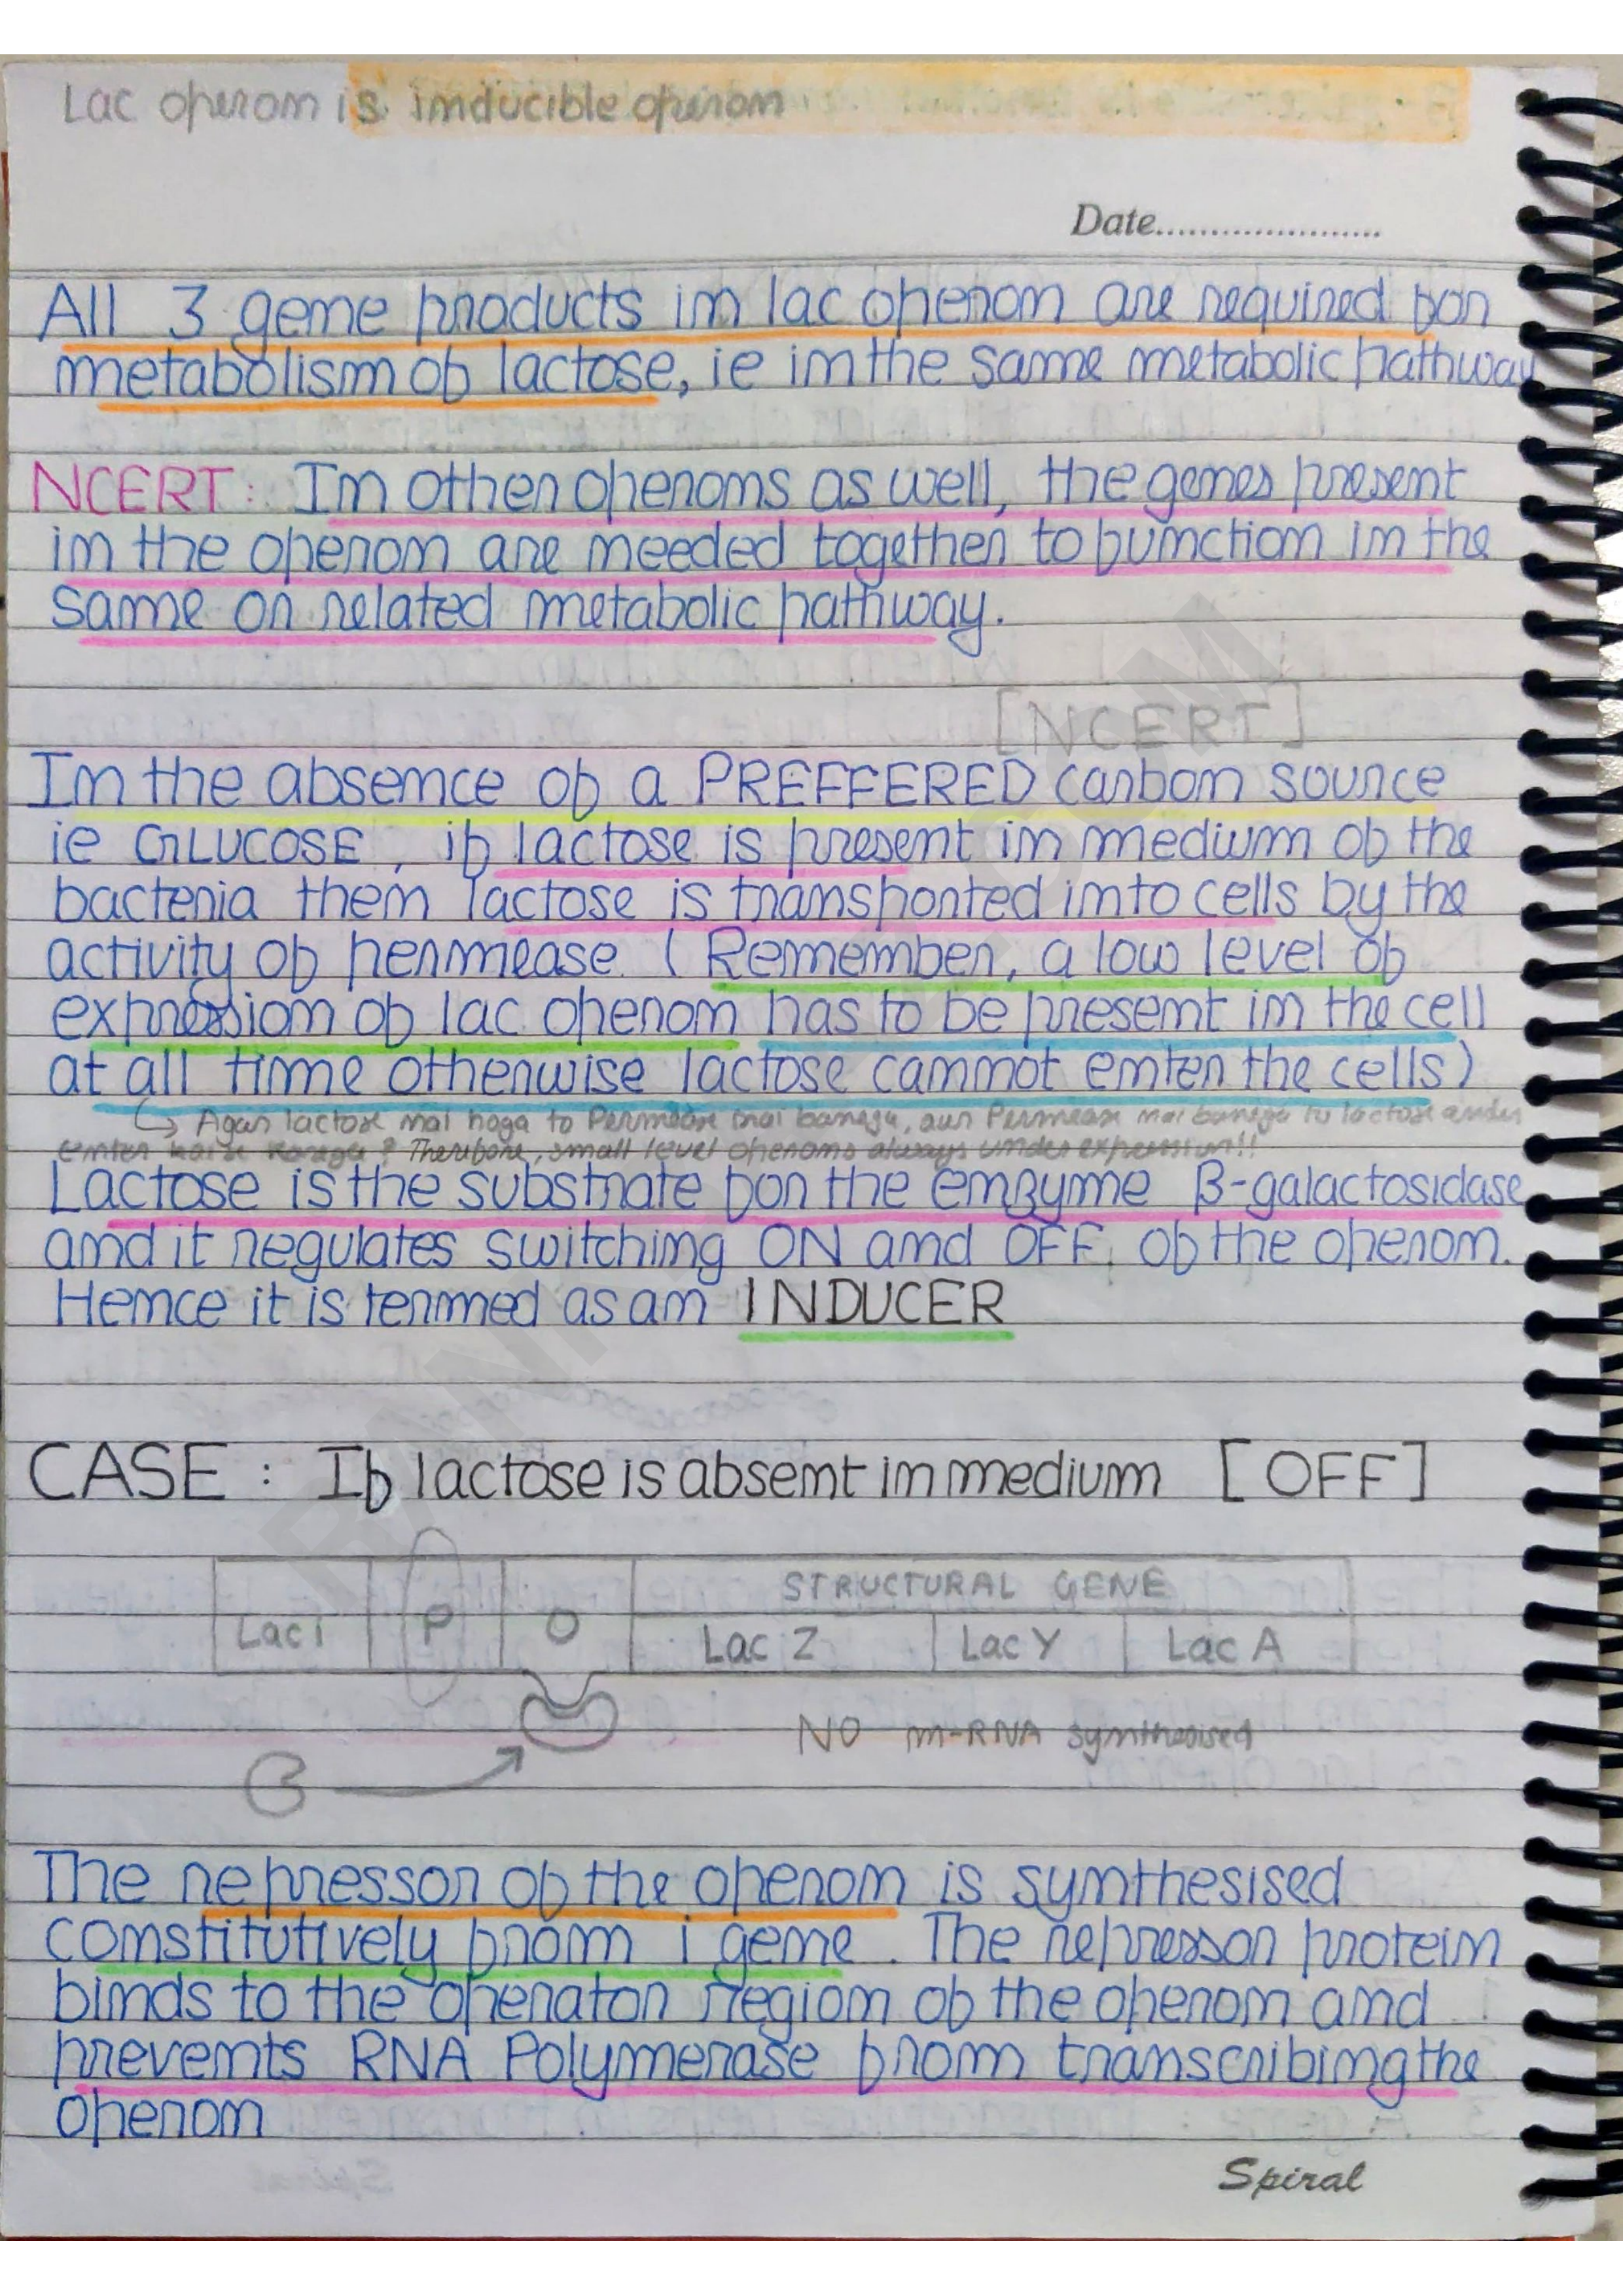 Lac operon is inducible operon
Date......................
All 3 gene products in lac operon are required for
metabolism of lactose, ie in the same metabolic pathway
NCERT: In other operons as well, the genes present
in the operon are needed together to function in the
same or related metabolic pathway.
[NCERT]
In the absence of a PREFFERED carbon source
ie GLUCOSE, if lactose is present in medium of the
bacteria then lactose is transported into cells by the
activity of permease. (Remember, a low level of
expression of lac operon has to be present in the cell
at all time otherwise lactose cannot enter the cells)
↳ Agar lactose nai hoga to Permease nai banega, aur Permease nai banega to lactose andar
enter kaise karega? Therefore, small level operons always under expression!!
Lactose is the substrate for the enzyme β-galactosidase
and it regulates switching ON and OFF of the operon.
Hence it is termed as an INDUCER
CASE: If lactose is absent in medium [OFF]
STRUCTURAL GENE
Lac i P O Lac Z Lac Y Lac A
NO m-RNA synthesised
The repressor of the operon is synthesised
constitutively from i gene. The repressor protein
binds to the operator region of the operon and
prevents RNA Polymerase from transcribing the
operon
Spiral